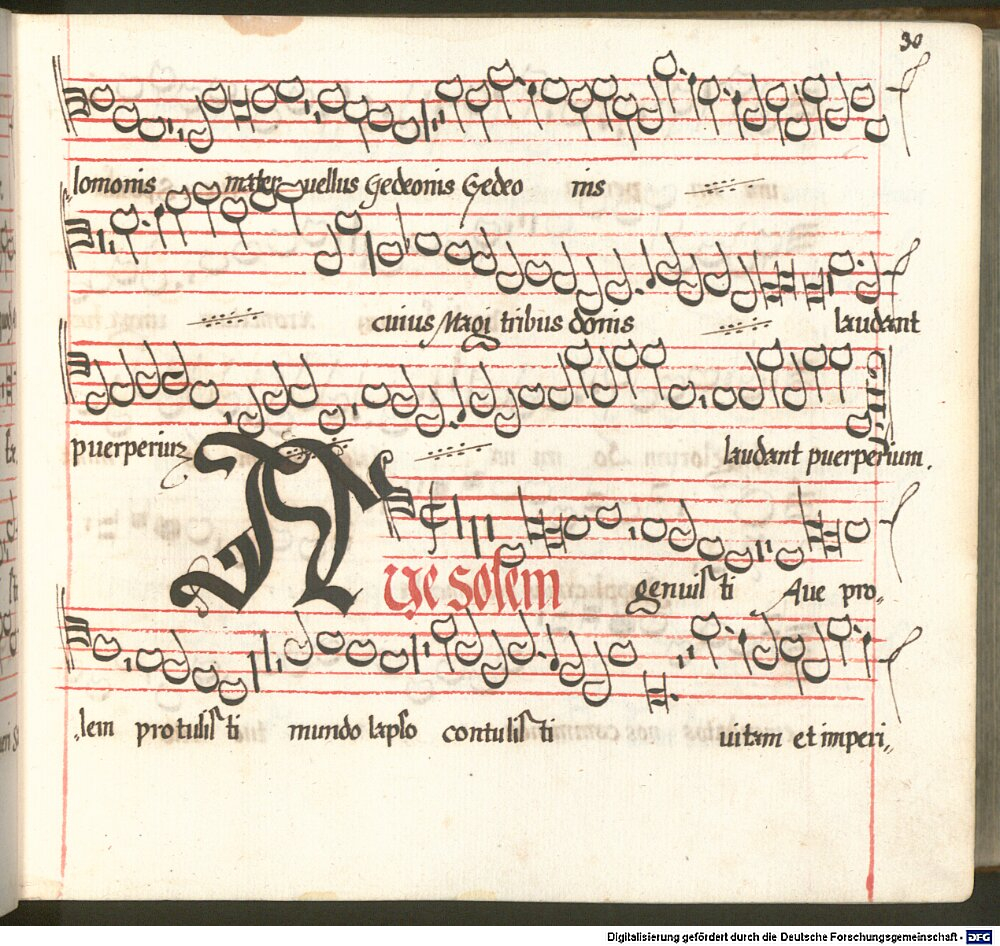 30
lomonis mater vellus Gedeonis Gedeo nis
cuius Magi tribus donis laudant
puerperium laudant puerperium.
AVe solem genuisti Aue pro„
„lem protulisti mundo lapso contulisti uitam et imperi„
Digitalisierung gefördert durch die Deutsche Forschungsgemeinschaft - DFG